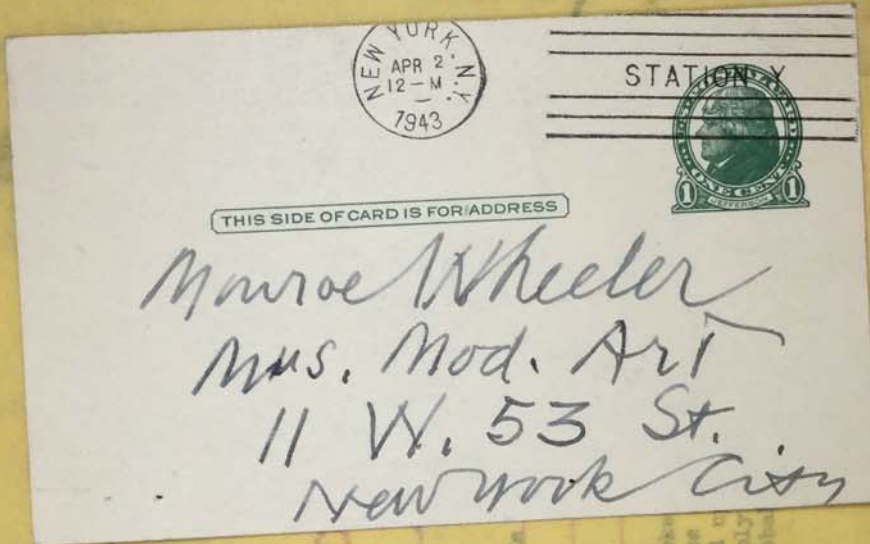 NEW YORK, N.Y.
APR 2
12 - M
1943
STATION Y
ONE CENT
1 1
JEFFERSON
THIS SIDE OF CARD IS FOR ADDRESS
Monroe Wheeler
Mus. Mod. Art
11 W. 53 St.
New York City